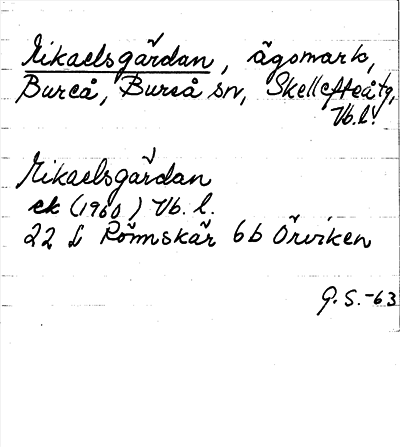 Mikaelsgårdan, ägomark,
Bureå, Bureå sn, Skellefteå tg,
Vb. l.
Mikaelsgårdan
ek (1960) Vb. l.
22 L Rönnskär 6b Örviken
G. S. -63